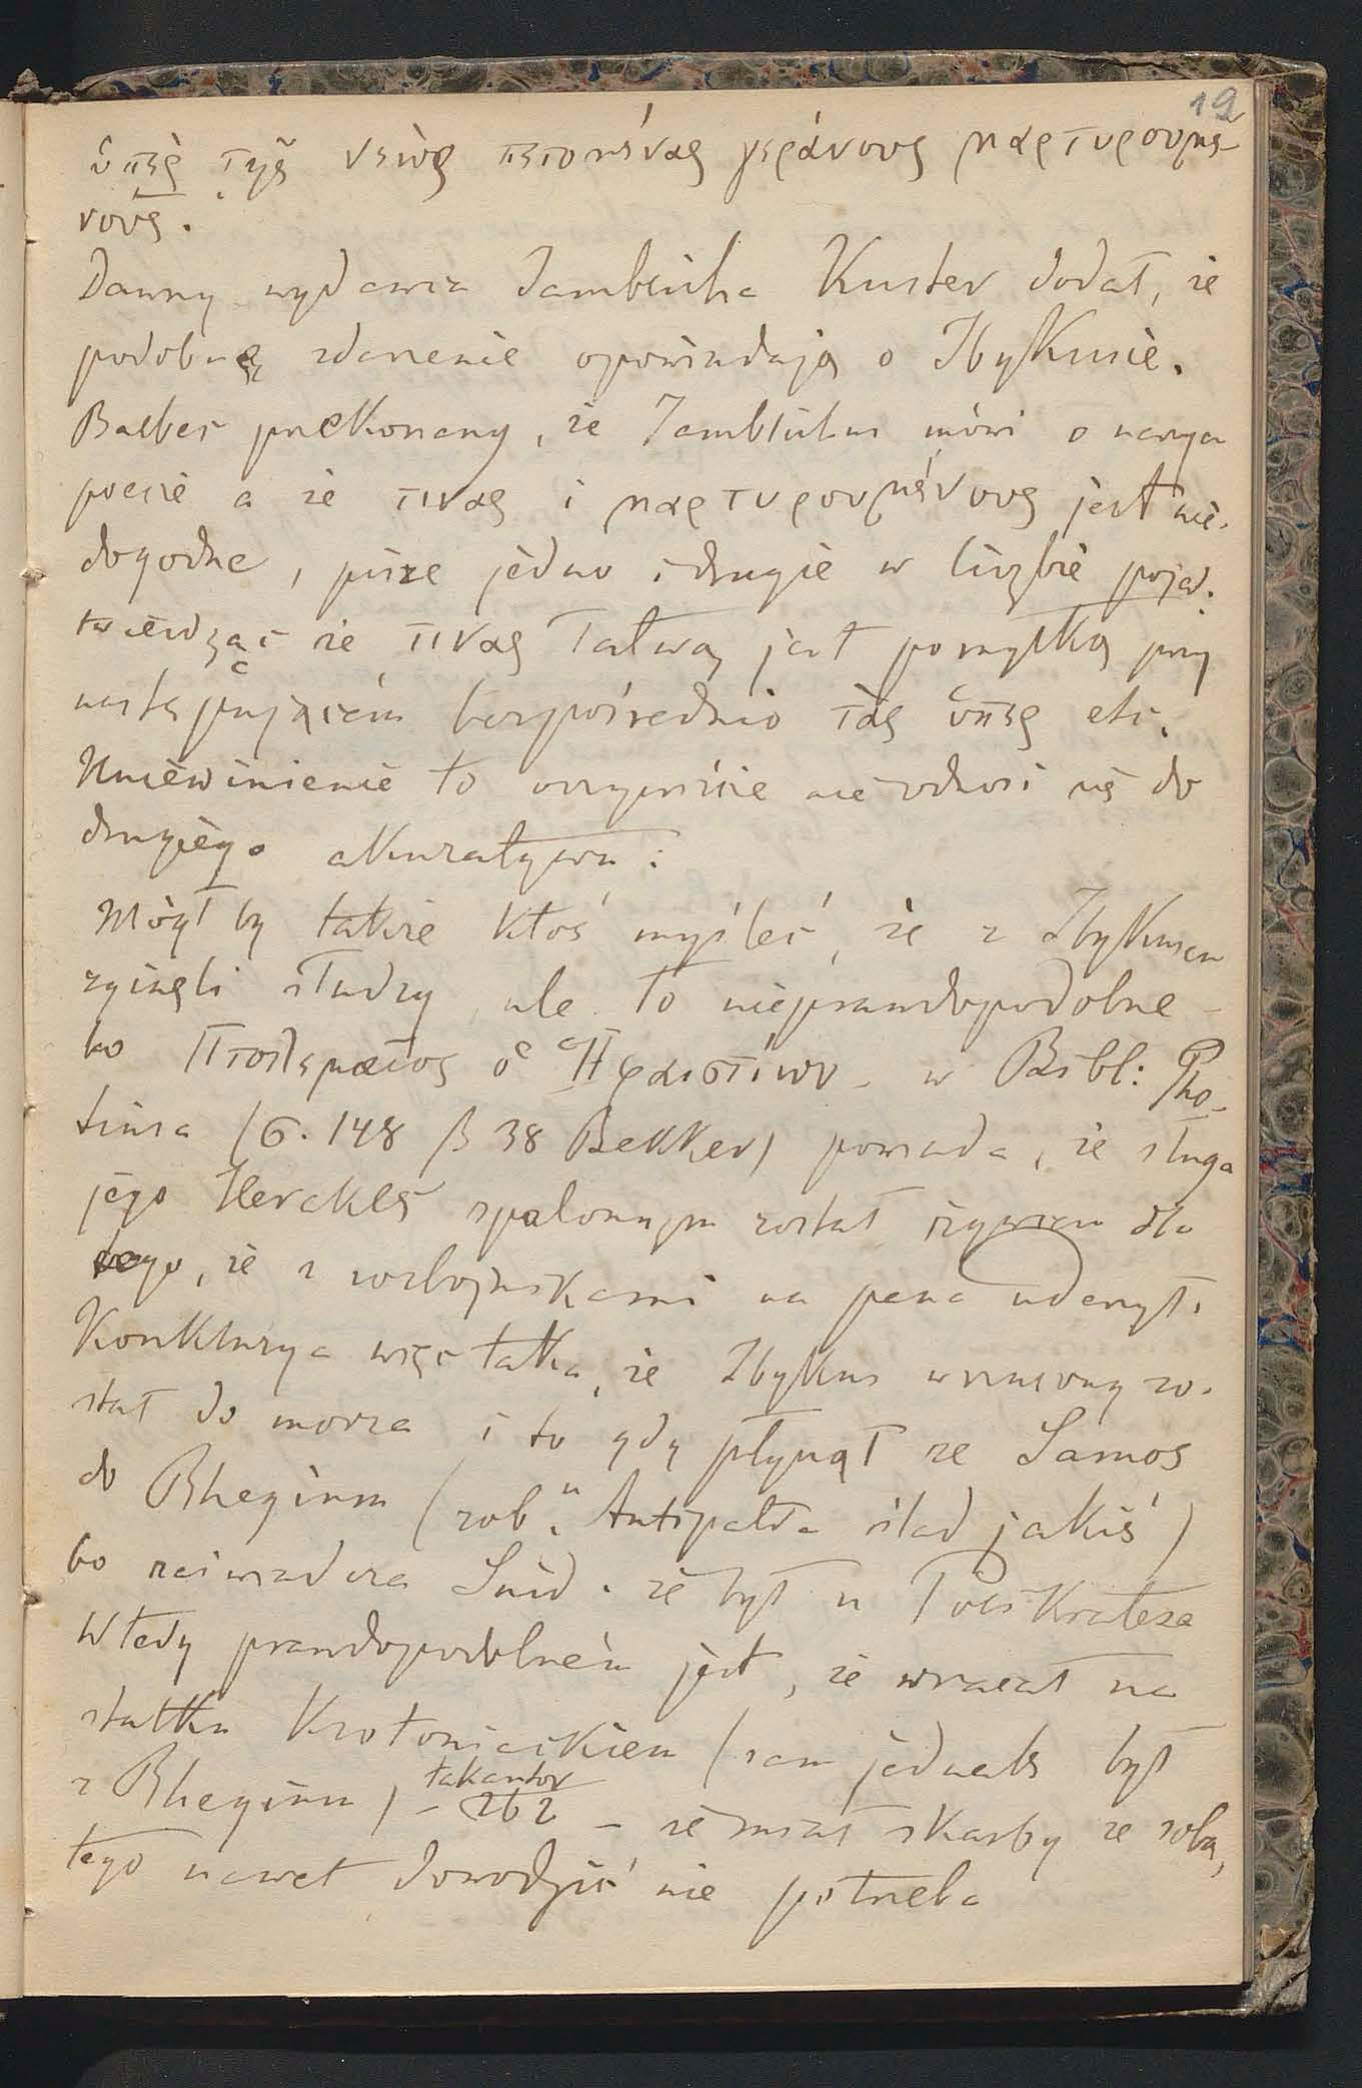 19
ὑπὲρ τῆς νεὼς πετομένας γεράνους μαρτυρουμέ-
νους.
Dawny wydawca Jamblicha Kuster dodał, że
podobnę zdarzenie opowiadają o Ibykusie.
Balbes przekonany, że Jamblichus mówi o naszym
poecie a że τινας i μαρτυρουμένους jest nie-
dogodne, pisze jedno i drugie w liczbie pojed.
twierdząc że τινας łatwą jest pomyłką przy
następującém bezpośrednio τὰς ὑπὲρ etc.
Uniewinienie to oczywiście nie odnosi się do
drugiego akuzatywu:
Mógł by także ktoś myśleć, że z Ibykusem
zginęli słudzy ale to nieprawdopodobne
bo Πτολεμαῖος ὁ Ἡφαιστίων - w Bibl: Pho-
tiusa (G. 148 β 38 Bekker) powiada, że sługa
jego Herakles spalonym został żywcem dla
tego, że z rozbójnikami na pana uderzył.
Konkluzya więc taka, że Ibykus wrzucony zo-
stał do morza i to gdy płynął ze Samos
do Rhegium (zob: " Antipatra ślad jakiś)
bo zaświadcza Suid. że był u Polikratesa
Wtedy prawdopodobném jest, że wracał na
statku Krotoniackiem (sam jednak był
z Rhegium) - 262 - że miał skarby ze sobą,
tego nawet dowodzić nie potrzeba